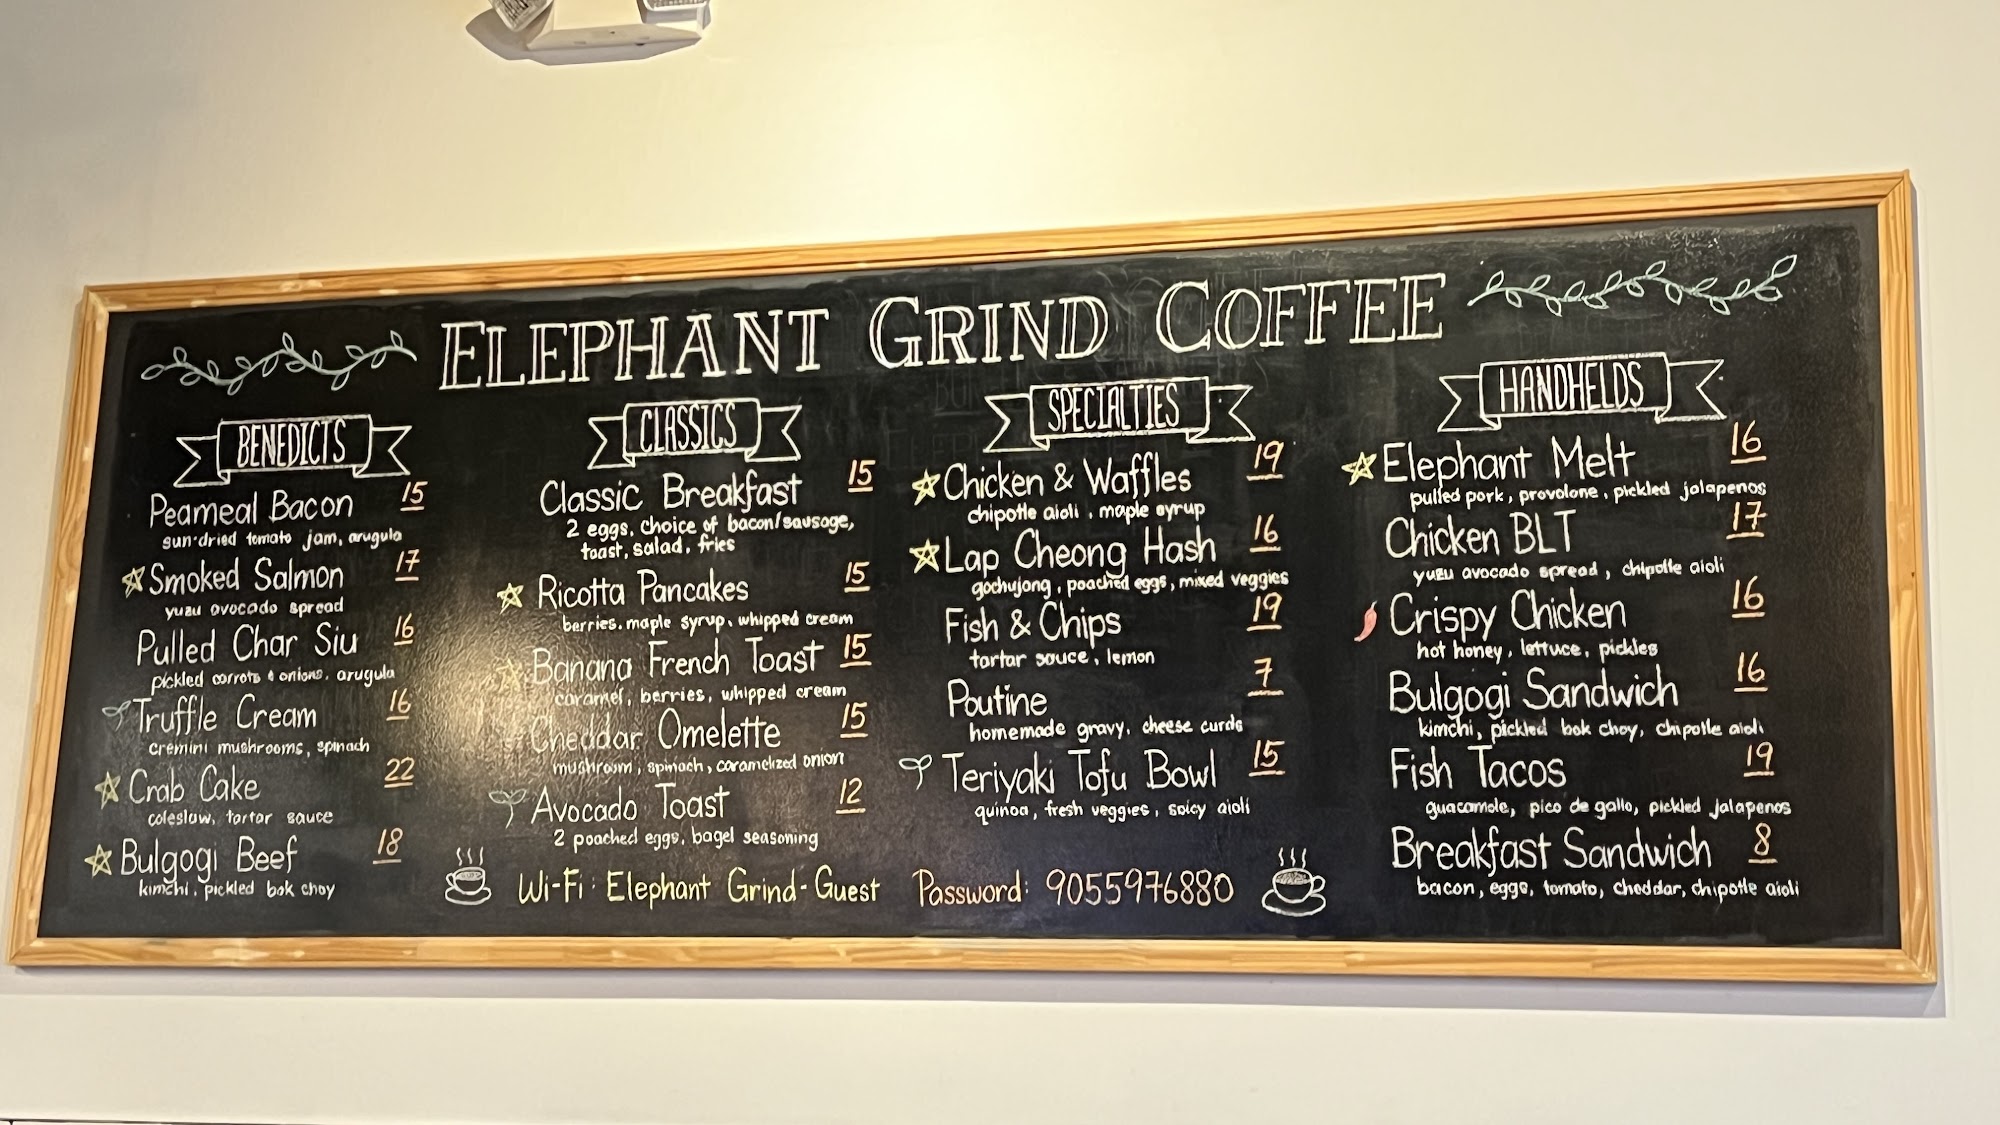 ELEPHANT GRIND COFFEE
BENEDICTS
Peameal Bacon 15
sun-dried tomato jam, arugula
Smoked Salmon 17
yuzu avocado spread
Pulled Char Siu 16
pickled carrots & onions, arugula
Truffle Cream 16
cremini mushrooms, spinach
Crab Cake 22
coleslaw, tartar sauce
Bulgogi Beef 18
kimchi, pickled bok choy
CLASSICS
Classic Breakfast 15
2 eggs, choice of bacon/sausage,
toast, salad, fries
Ricotta Pancakes 15
berries, maple syrup, whipped cream
Banana French Toast 15
caramel, berries, whipped cream
Cheddar Omelette 15
mushroom, spinach, caramelized onion
Avocado Toast 12
2 poached eggs, bagel seasoning
SPECIALTIES
Chicken & Waffles 19
chipotle aioli, maple syrup
Lap Cheong Hash 16
gochujong, poached eggs, mixed veggies
Fish & Chips 19
tartar sauce, lemon
Poutine 7
homemade gravy, cheese curds
Teriyaki Tofu Bowl 15
quinoa, fresh veggies, spicy aioli
HANDHELDS
Elephant Melt 16
pulled pork, provolone, pickled jalapenos
Chicken BLT 17
yuzu avocado spread, chipotle aioli
Crispy Chicken 16
hot honey, lettuce, pickles
Bulgogi Sandwich 16
kimchi, pickled bok choy, chipotle aioli
Fish Tacos 19
guacamole, pico de gallo, pickled jalapenos
Breakfast Sandwich 8
bacon, eggs, tomato, cheddar, chipotle aioli
Wi-Fi: Elephant Grind-Guest Password: 9055976880